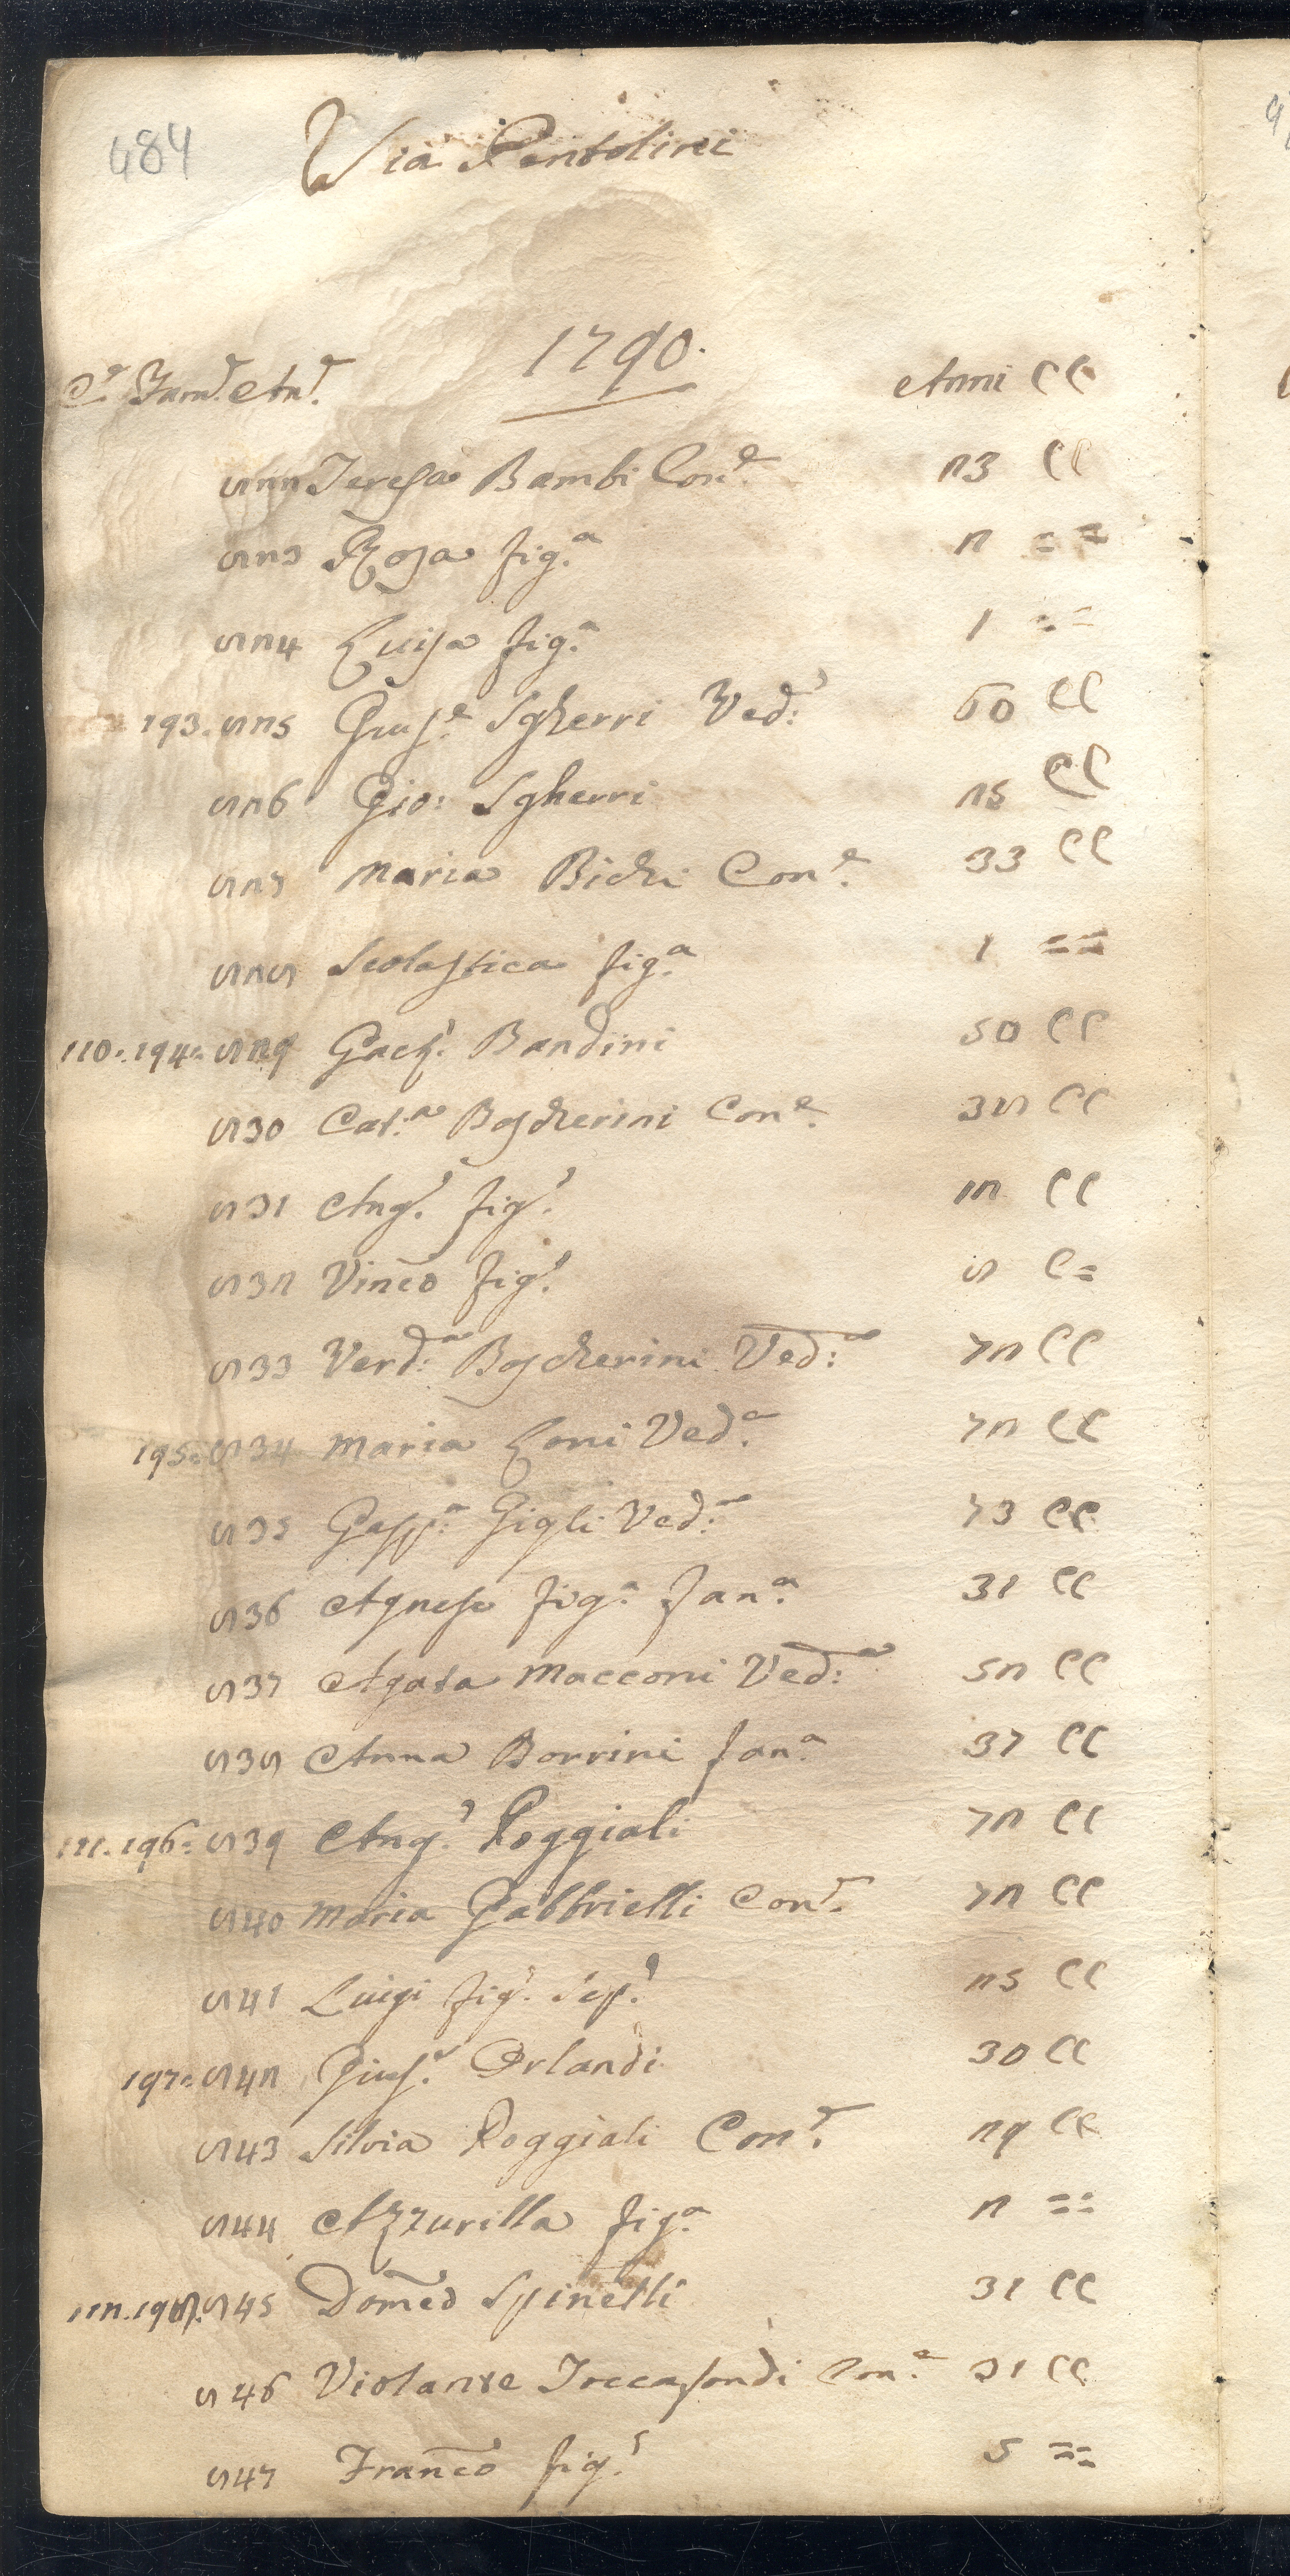 484
Via Pentolini
1790.
Cᵉ Famᵉ. Anᵉ. Anni CC
822 Teresa Bambi Conᵉ. 23 CC
823 Rosa figᵃ. 2 = =
824 Luisa figᵃ. 1 = =
193. 825 Giusᵉ. Sgherri Vedᵒ: 60 CC
826 Gio: Sgherri 25 CC
827 Maria Bichi Conᵉ. 33 CC
828 Scolastica figᵃ. 1 = =
110. 194. 829 Gaetᵒ. Bandini 50 CC
830 Catᵃ: Boscherini Conᵉ. 38 CC
831 Angᵒ. figᵒ. 12 CC
832 Vinco figᵒ. 8 C =
833 Verdᵃ: Boscherini Vedᵃ: 72 CC
195. 834 Maria Loni Vedᵃ. 72 CC
835 Gaspᵃ: Gigli Vedᵃ: 73 CC
836 Agnese figᵃ. fanᵃ. 31 CC
837 Agata Macconi Vedᵃ: 52 CC
838 Anna Borrini fanᵃ. 37 CC
111. 196. 839 Angᵒ. Poggiali 72 CC
840 Maria Gabbrielli Conᵉ. 72 CC
841 Luigi figᵒ. 25 CC
197. 842 Giusᵉ. Orlandi 30 CC
843 Silvia Poggiali Conᵉ. 29 CC
844 Azzurilla figᵃ. 2 = =
112. 198. 845 Domco Spinelli 31 CC
846 Violante Treccafondi Conᵉ. 31 CC
847 Franco figᵒ. 5 = =